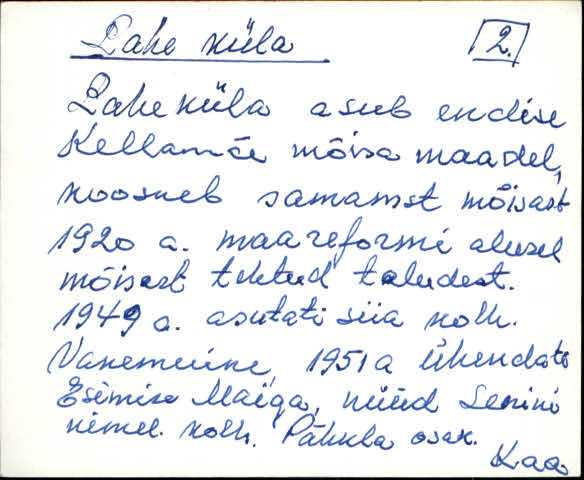 Lahe küla 2.
Lahe küla asub endise
Kellamäe mõisa maadel,
koosneb samamst mõisast
1920 a. maareformi alusel
mõisast tehtud taludest.
1949 a. asutati siia kolh.
Vanemuine, 1951 a ühendati
Esimise Maiga, nüüd Lenini
nimel. kolh. Pähkla osak.
Kaa